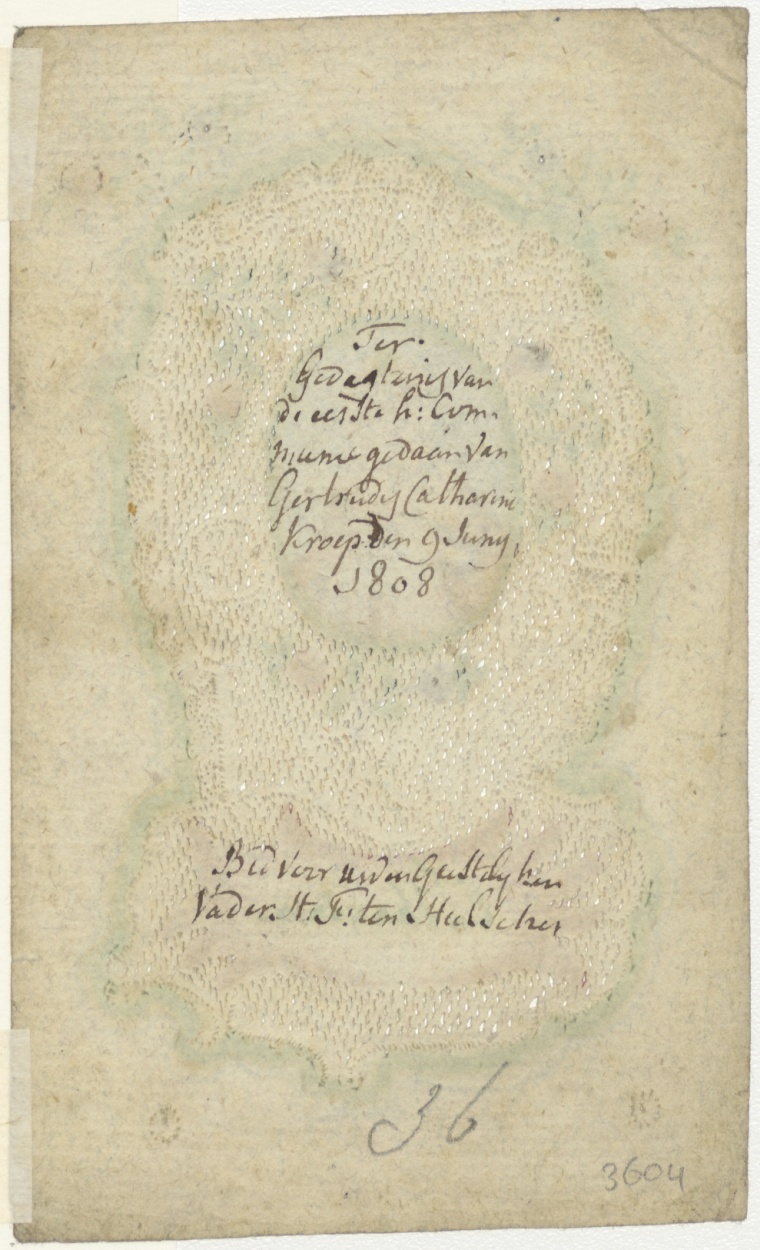 Ter.
Gedagtenis van
de eerste h: Com,
munie gedaan van
Gertrudis Catharine
Kroep. den 9 Juny,
1808
Bid voor uwen Geestelyken
Vader. St: F: ten Hulscher
36
3604